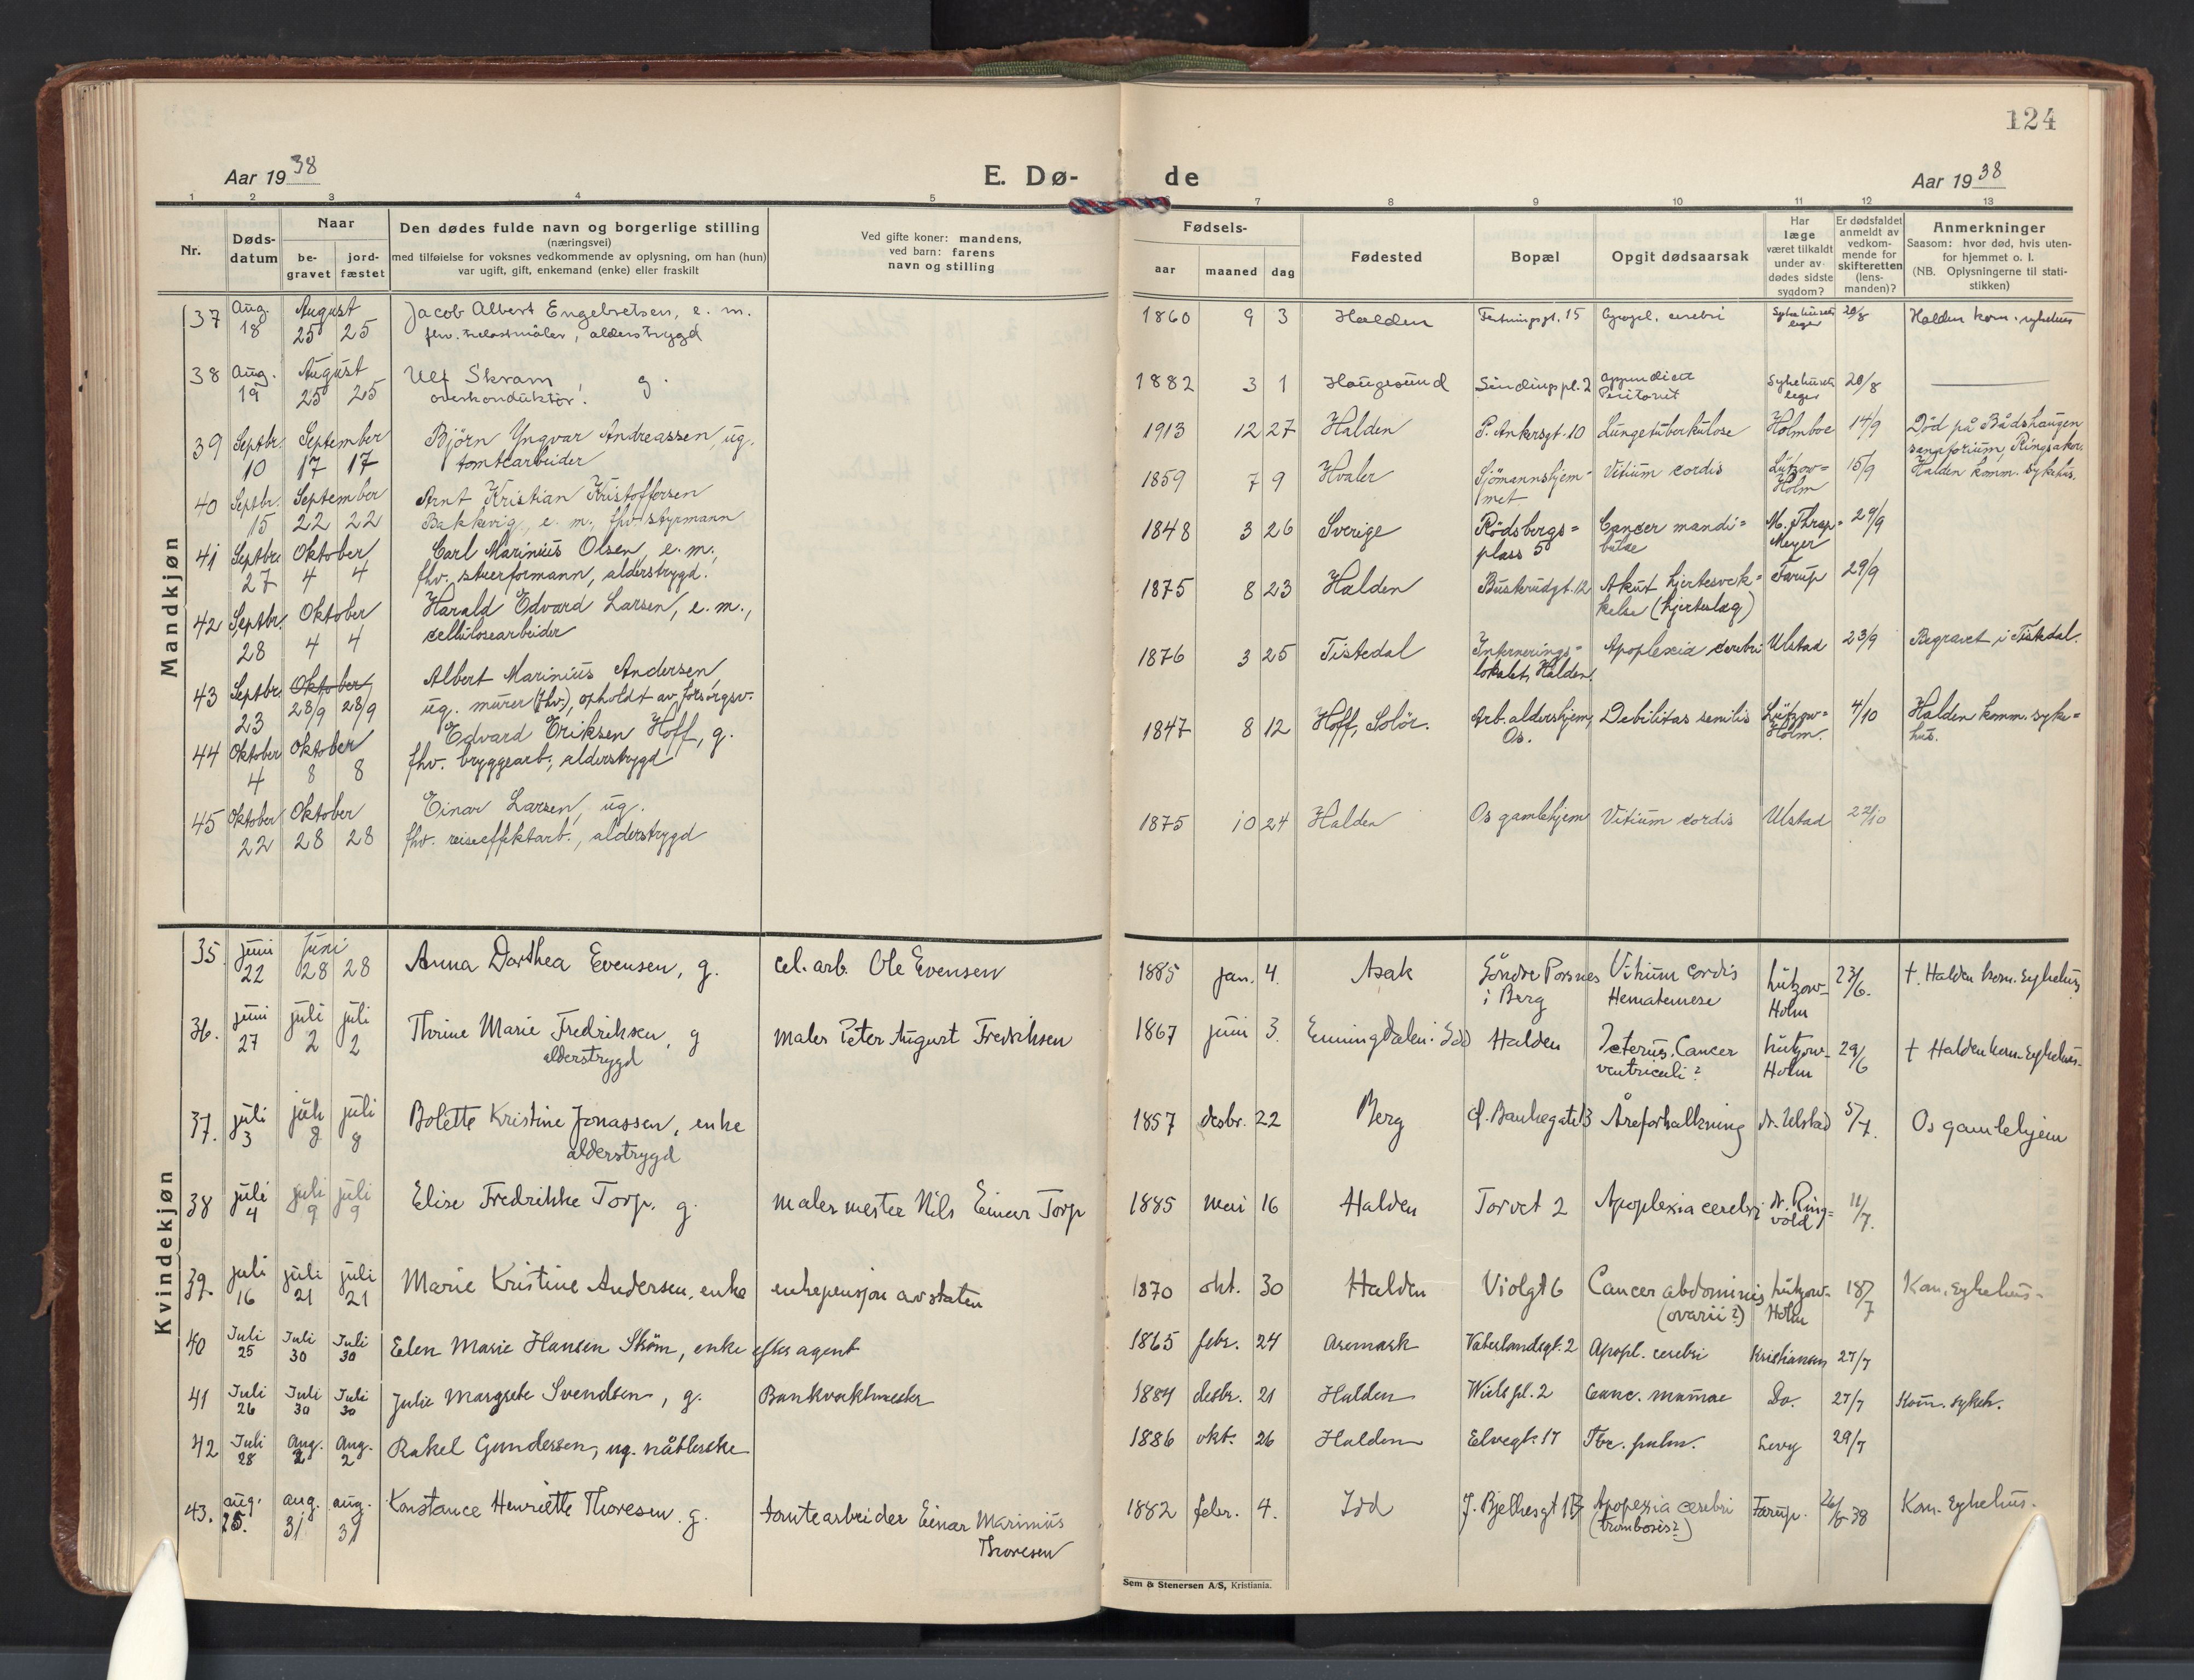 124
Aar 1938
E. Dø-
de
Aar 1938
1 2 3 4 5 7 8 9 10 11 12 13
Nr.
Døds-
datum
Naar
be-
gravet
jord-
fæstet
Den dødes fulde navn og borgerlige stilling
(næringsvei)
med tilføielse for voksnes vedkommende av oplysning, om han (hun)
var ugift, gift, enkemand (enke) eller fraskilt
Ved gifte koner: mandens,
ved barn: farens
navn og stilling
Fødsels-
aar
maaned
dag
Fødested
Bopæl
Opgit dødsaarsak
Har
læge
været tilkaldt
under av-
dødes sidste
sygdom?
Er dødsfaldet
anmeldt av
vedkom-
mende for
skifteretten
(lens-
manden)?
Anmerkninger
Saasom: hvor død, hvis uten-
for hjemmet o. l.
(NB. Oplysningerne til stati-
stikken)
Mandkjøn
37 Aug. August Jacob Albert Engebretsen, e. m. 1860 9 3 Halden Festningsgt. 15 Apopl. cerebri Sykehusets 20/8 Halden kom. sykehus
18 25 25 fhv. trelastmåler, alderstrygd leger
38 Aug. August Ulf Skram g. 1882 3 1 Haugesund Sindings pl. 2 Sykehusets 20/8
19 25 25 overkonduktør. Peritonit leger
39 Septbr. September Björn Yngvar Andreassen, ug. 1913 12 27 Halden P. Ankersgt. 10 Lungetuberkulose Holmboe 14/9 Död på Bådshaugen
10 17 17 tomtearbeider sanatorium, Ringsaker.
40 Septbr. September Arnt Kristian Kristoffersen 1859 7 9 Hvaler Sjömannshjem- Vitium cordis Lützow= 15/9 Halden komm. sykehus.
15 22 22 Bakkevig, e. m., fhv. styrmann met Holm
41 Septbr. Oktober Carl Marinius Olsen, e. m., 1848 3 26 Sverige Rödsbergs= Cancer mandi= M. Thrap= 29/9
27 4 4 fhv. stuerformann, alderstrygd. plass 5 bulae Meyer
42 Septbr. Oktober Harald Edvard Larsen, e. m., 1875 8 23 Halden Busterudgt. 12 Akut hjertesvek= Farup 29/9
28 4 4 cellulosearbeider kelse (hjerteslag)
43 Septbr. Oktober Albert Marinius Andersen, 1876 3 25 Tistedal Internerings= Apoplexia cerebri Ulstad 23/9 Begravet i Tistedal.
23 28/9 28/9 ug. murer (fhv.), opholdt av forsorgsv. lokalet, Halden
44 Oktober Oktober Edvard Eriksen Hoff, g. 1847 8 12 Hoff, Solör. Arb. aldershjem, Debilitas senilis Lützow= 4/10 Halden komm. syke=
4 8 8 fhv. bryggearb., alderstrygd Os. Holm. hus.
45 Oktober Oktober Einar Larsen, ug. 1875 10 24 Halden Os gamlehjem Vitium cordis Ulstad 22/10
22 28 28 fhv. reiseeffektarb., alderstrygd
Kvindekjøn
35. juni juni Anna Dorthea Evensen, g. cel. arb. Ole Evensen 1885 jan. 4. Asak Söndre Porsnes Vitium cordis Lützow- 23/6. †. Halden kom. sykehus
22 28 28 i Berg Hematemese Holm
36. juni juli juli Thrine Marie Fredriksen, g maler Peter August Fredriksen 1867 juni 3. Enningdalen i Idd Halden Icterus. Cancer Lützow- 29/6 † Halden kom. sykehus.
27 2 2 alderstrygd ventriculi? Holm
37. juli juli juli Bolette Kristine Jonassen, enke 1857 desbr. 22 Berg Of. Bankegate 13 Åreforkalkning dr. Ulstad 5/7. Os gamlehjem
3 8 8 alderstrygd
38 juli juli juli Elise Fredrikke Torp. g. malermester Nils Einar Torp 1885 mai 16 Halden Torvet 2 Apoplexia cerebri dr. Ring= 11/7.
4 9 9 vold
39. juli juli juli Marie Kristine Andersen, enke enkepensjon av staten 1870 okt. 30 Halden Violgt 6 Cancer abdominis Lützow- 18/7 Kom. sykehus.
16 21 21 (ovarii?) Holm
40 Juli Juli Juli Elen Marie Hansen Ström, enke efter agent 1865 febr. 24 Aremark Vaterlandsgt. 2 Apopl. cerebri Kristiansen 27/7
25 30 30
41 Juli Juli Juli Julie Margrete Svendsen, g. Bankvaktmester 1884 desbr. 21 Halden Wiels pl. 2 Canc. mamae Do. 27/7 Kom. sykeh.
26 30 30
42 Juli Aug. Aug. Rakel Gundersen, ug. nåtlerske 1886 okt. 26 Halden Elvegt. 17 Tbc. pulm. Levy 29/7
28 2 2
43. aug. aug. aug. Konstance Henriette Thoresen. g. tomtearbeider Einar Marinius 1882 febr. 4. Idd J. Bjelkesgt 17 Apopexia cerebri Farup. 26/8-38 Kom. sykehus.
25. 31 31 Thoresen (trombosis?)
Sem & Stenersen A/S, Kristiania.